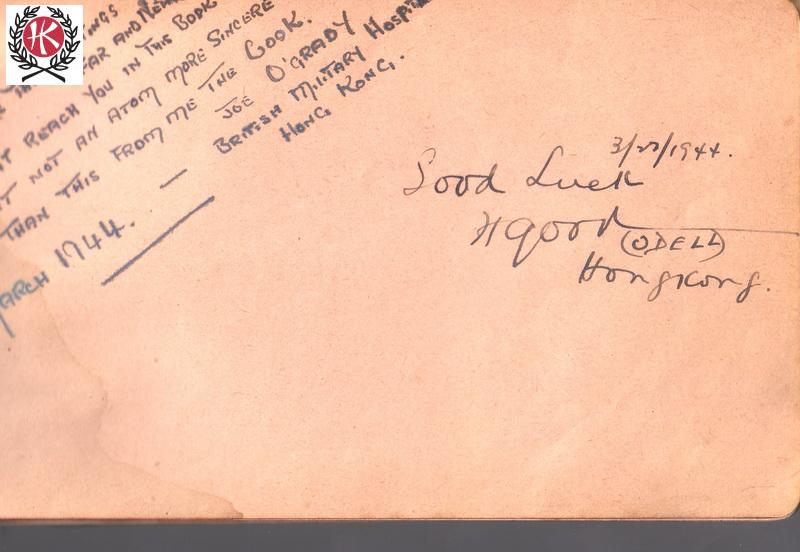 HK
TINGS
FAR AND NEAR
REACH YOU IN THIS BOOK
NOT AN ATOM MORE SINCERE
THAN THIS FROM ME THE COOK.
— JOE O'GRADY
BRITISH MILITARY HOSPITA
HONG KONG.
ARCH 1944.
3/27/1944.
Good Luck
(ODELL)
Hongkong.